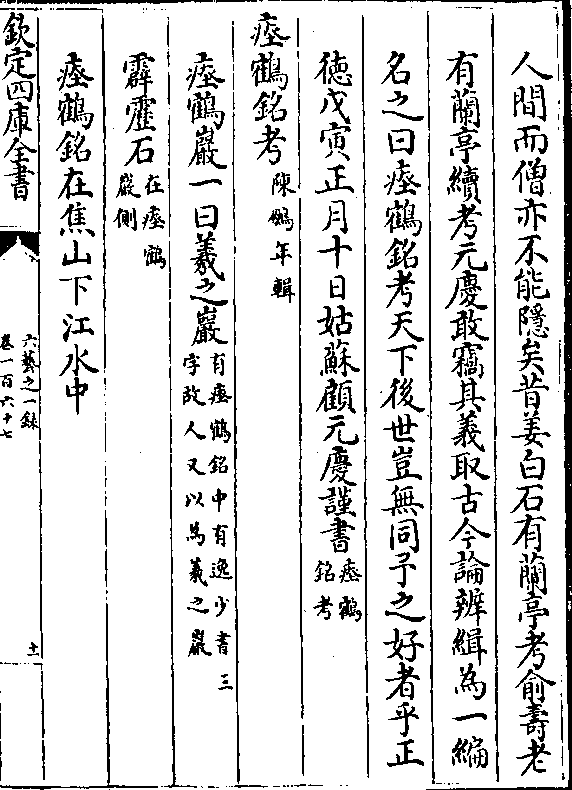 人間而僧亦不能隱矣昔姜白石有蘭亭考俞壽老
有蘭亭續考元慶敢竊其義取古今論辨緝為一編
名之曰瘞鶴銘考天下後世豈無同予之好者乎正
徳戊寅正月十日姑蘇顧元慶謹書瘞鶴銘考
瘞鶴銘考陳鵬年輯
瘞鶴巖一曰羲之巖有瘞鶴銘中有逸少書三字故人又以為羲之巖
霹靂石在瘞鶴巖側
瘞鶴銘在焦山下江水中
欽定四庫全書
六藝之一録
卷一百六十七
十一